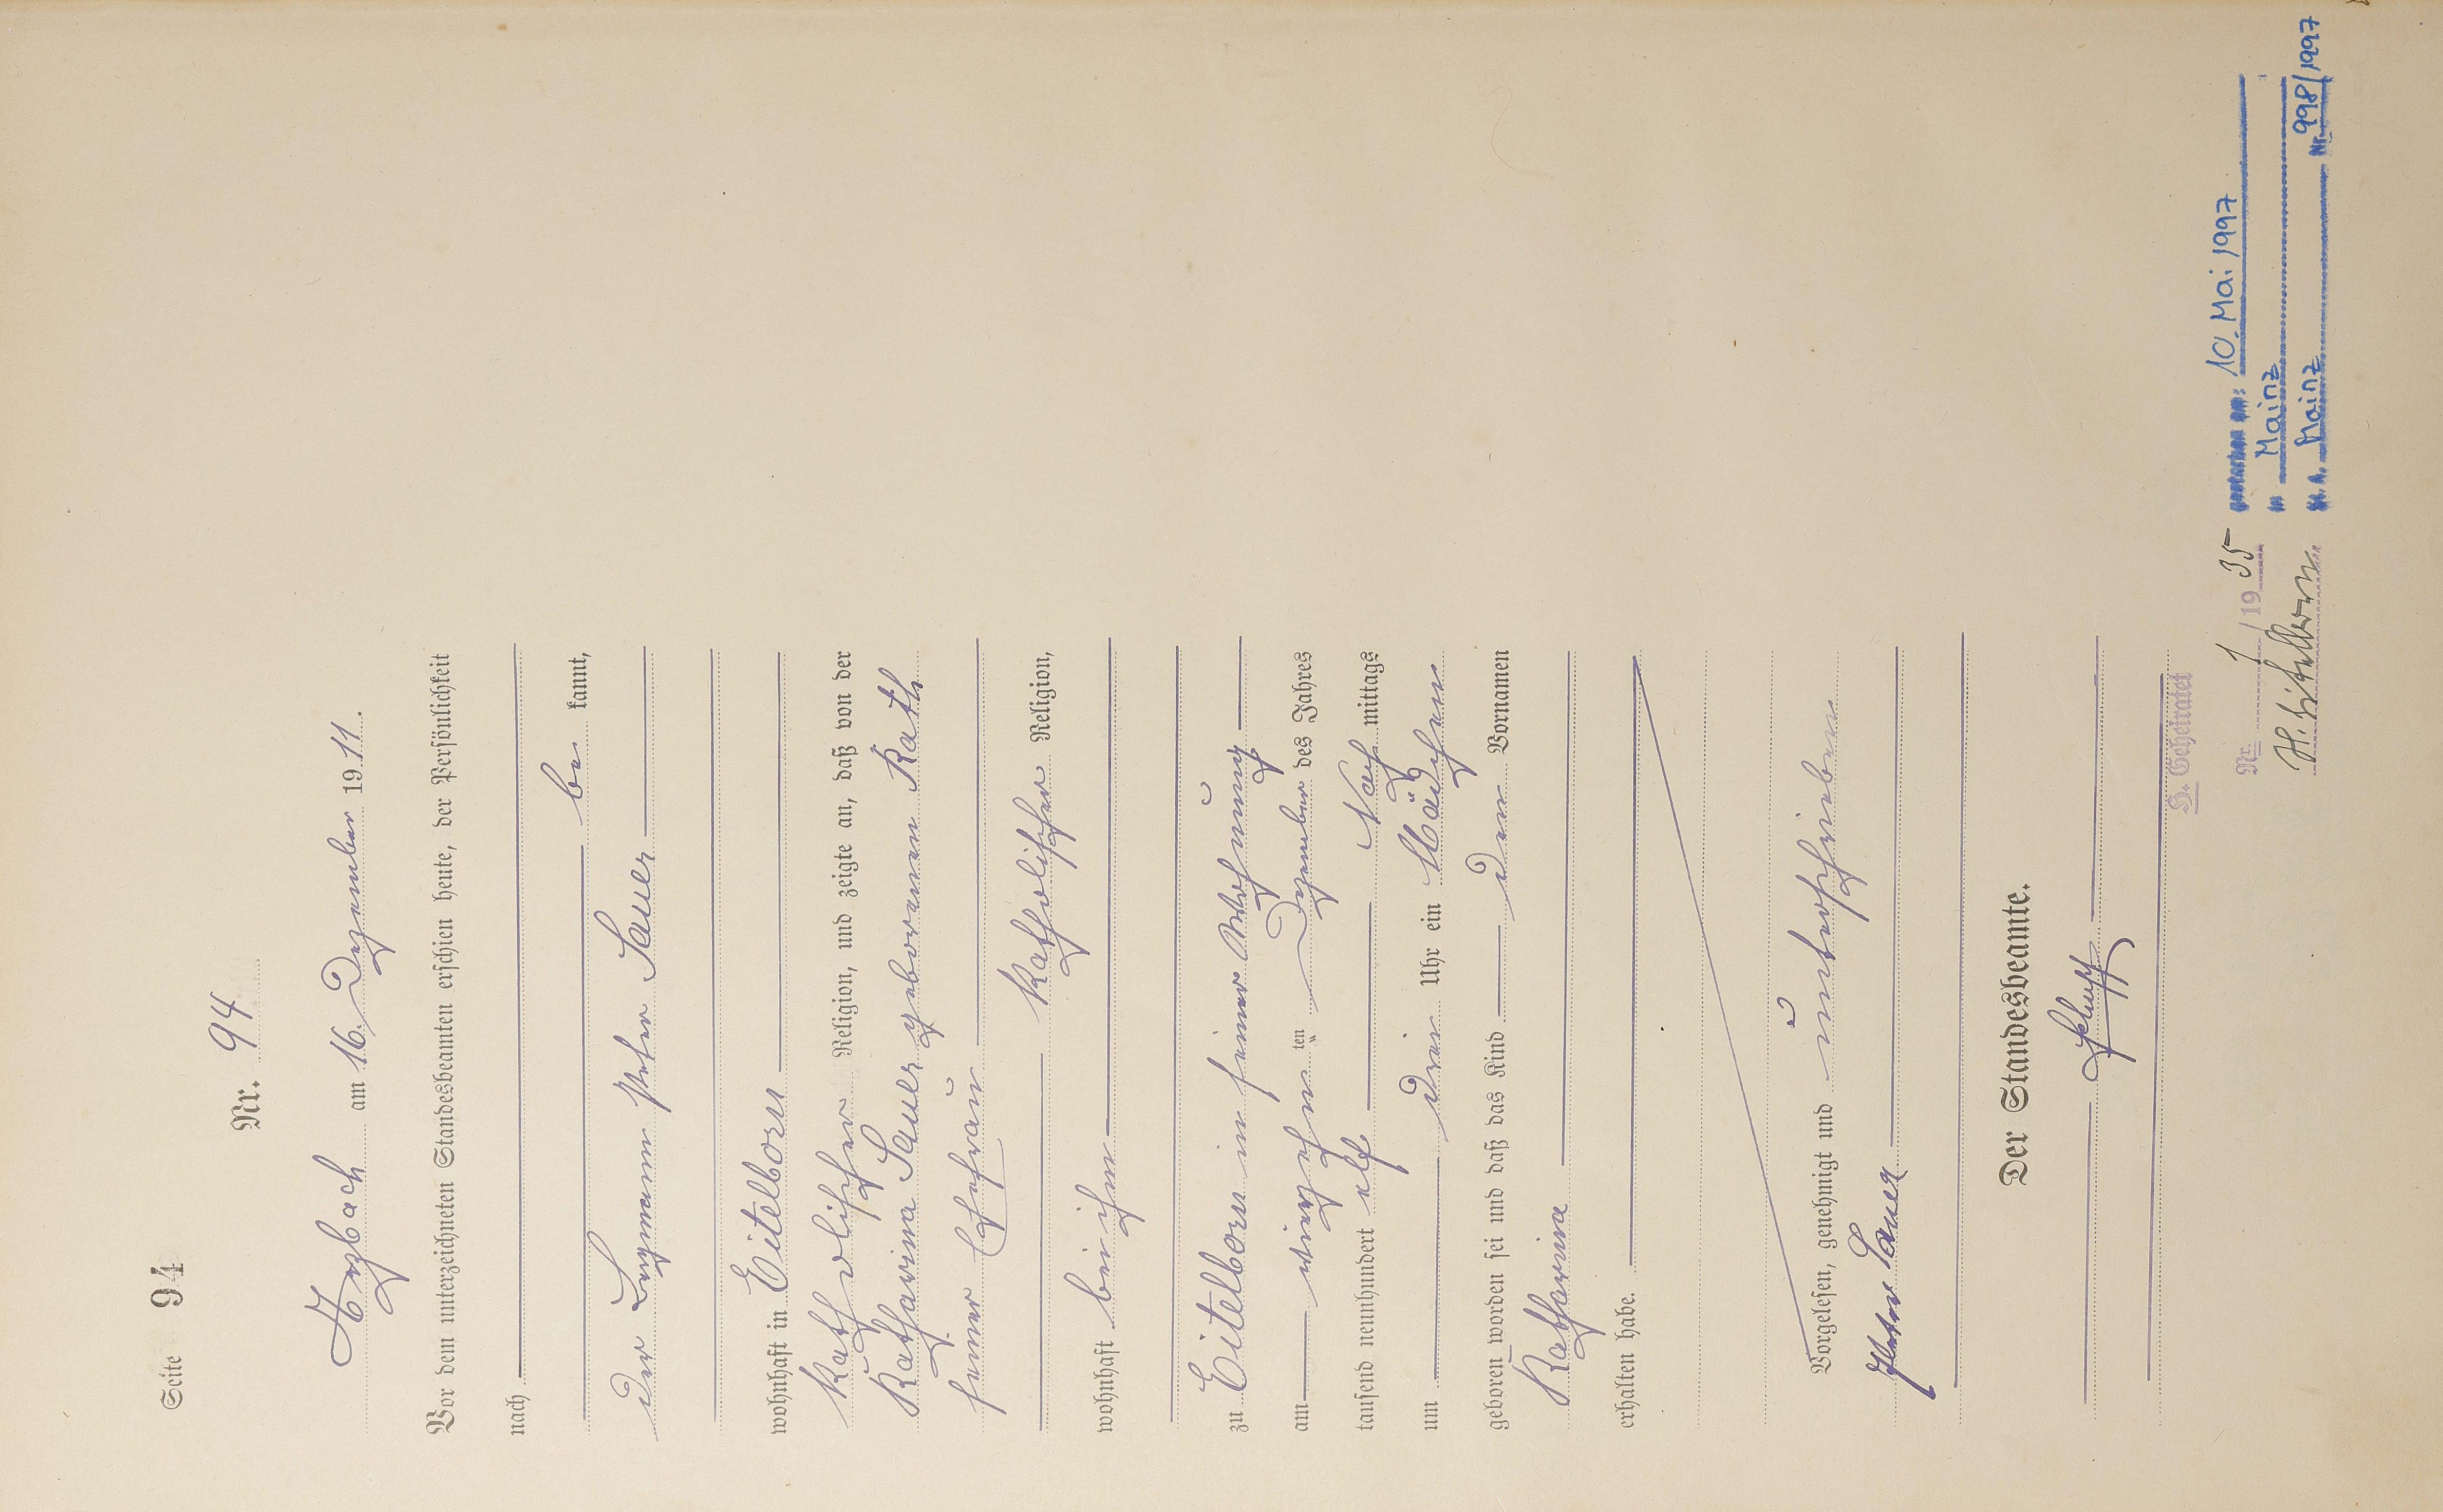 Seite 94
Nr. 94
Arzbach am 16. Dezember 1911.
Vor dem unterzeichneten Standesbeamten erschien heute, der Persönlichkeit
nach
be kannt,
der Bergmann Peter Sauer
wohnhaft in Eitelborn
katholischer Religion, und zeigte an, daß von der
Katharina Sauer geborenen Kath
seiner Ehefrau
katholischer Religion,
wohnhaft bei ihm
zu Eitelborn in seiner Wohnung
am vierzehn ten Dezember des Jahres
tausend neunhundert elf Nach mittags
um drei Uhr ein Mädchen
geboren worden sei und daß das Kind den Vornamen
Katharina
erhalten habe.
Vorgelesen, genehmigt und unterschrieben
Peter Sauer
Der Standesbeamte.
H. Geheiratet
Nr. 1/1935
H. Eitelborn
gestorben am: 10. Mai 1997
in Mainz
St. A. Mainz Nr. 998/1997